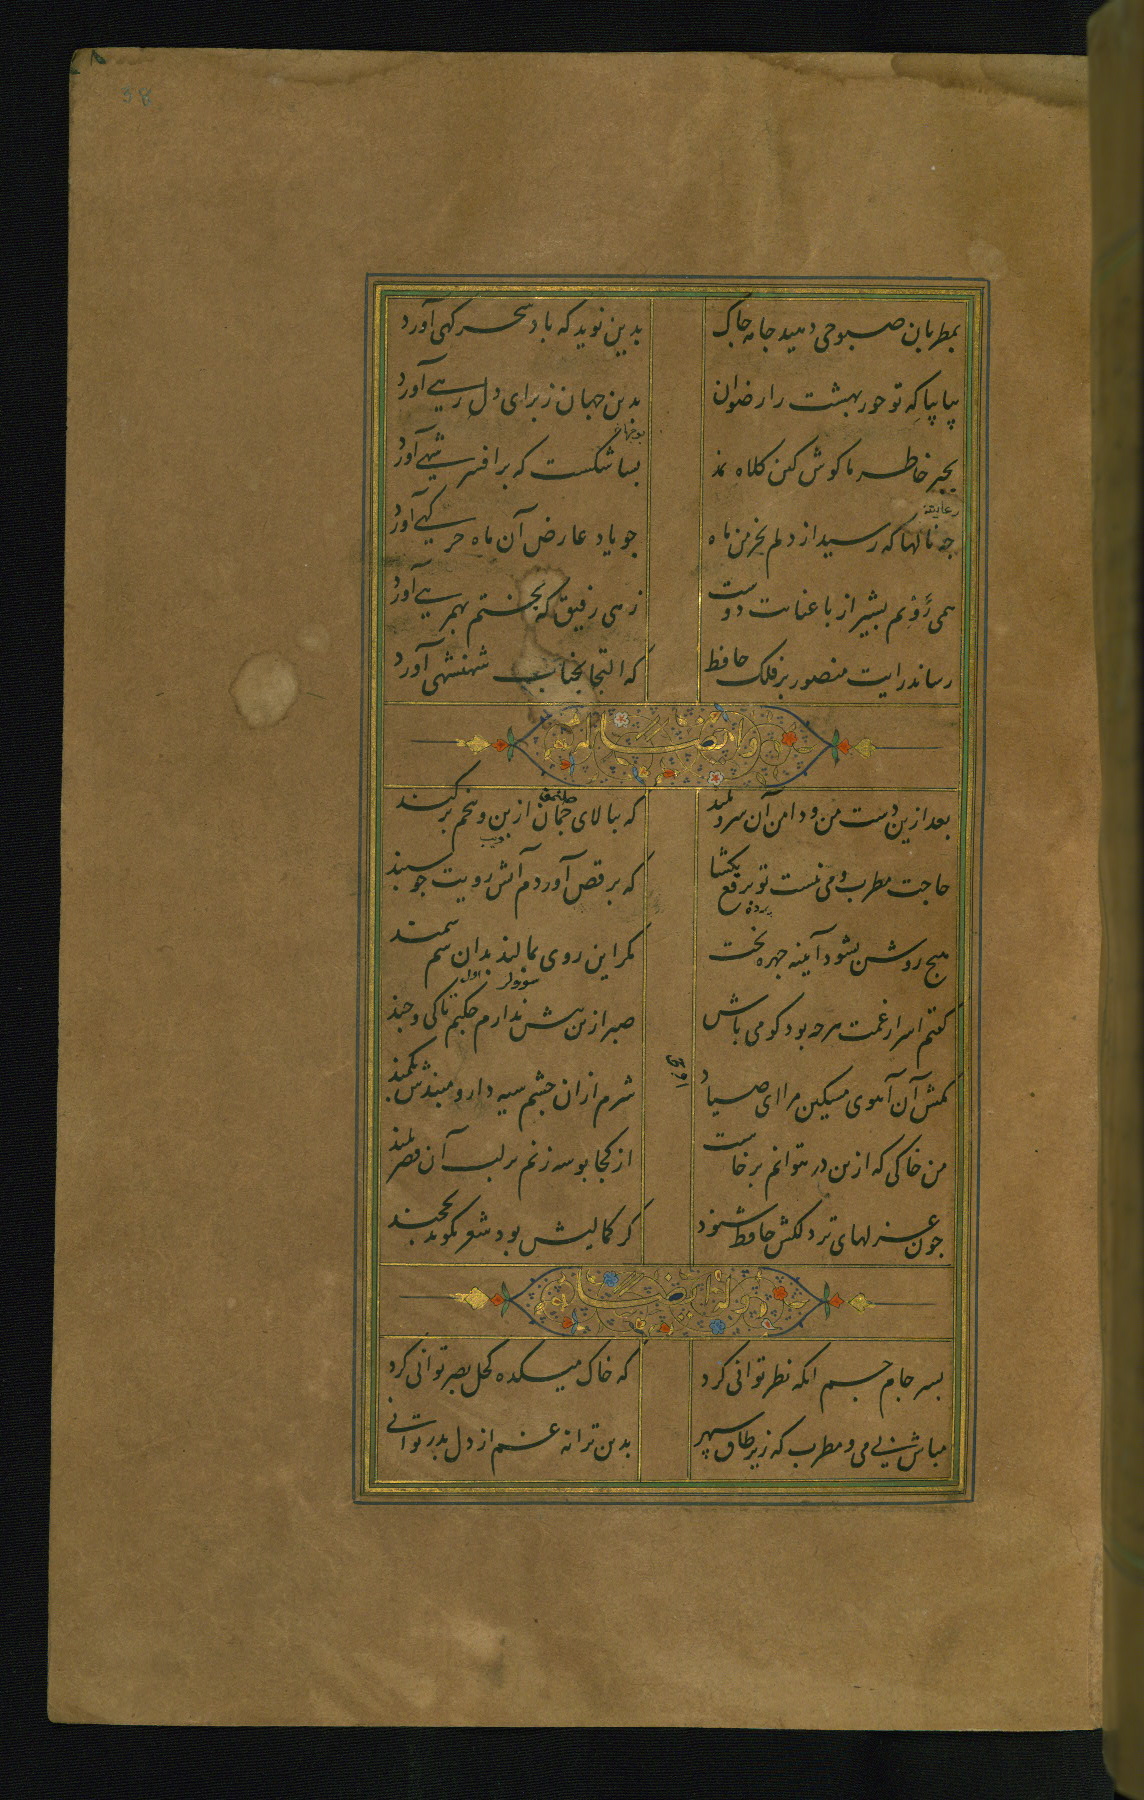 بمطربان صبوحی دهید جامه چاک
بدین نوید که باد سحر کهی آورد
بیا بیا که تو حور بهشت را رضوان
بدین جهان ز برای دل رهی آورد
بجبر خاطر ما کوش کین کلاه نمد
بسا شکست که بر افسر شهی آورد
چه نالها که رسید از دلم بخرمن ماه
چو یاد عارض آن ماه خرکهی آورد
همی رویم بشیراز با عنایت دوست
زهی رفیق که بختم بهمرهی آورد
رساند رایت منصور بر فلک حافظ
که التجا بجناب شهنشهی آورد
وله ایضا
بعد ازین دست من و دامن آن سرو بلند
که ببالای چمان از بن و بیخم برکند
حاجت مطرب و می نیست تو برقع بکشا
که برقص آوردم آتش رویت چو سپند
هیچ روشن نشود آینه چهره بخت
مکر این روی بمالند بدان سم سمند
کفتم اسرار غمت هرچه بود کو می باش
صبر ازین بیش ندارم چکنم تا کی و چند
مکش آن آهوی مسکین مرا ای صیاد
شرم از ان چشم سیه دار و مبندش بکمند
من خاکی که ازین در نتوانم برخاست
از کجا بوسه زنم بر لب آن قصر بلند
چون غزلهای تر دلکش حافظ شنود
کر کمالیش بود شعر نکوید بخجند
وله ایضا
بسر جام جم انکه نظر توانی کرد
که خاک میکده کحل بصر توانی کرد
مباش بی می و مطرب که زیر طاق سپهر
بدین ترانه غم از دل بدر توانی